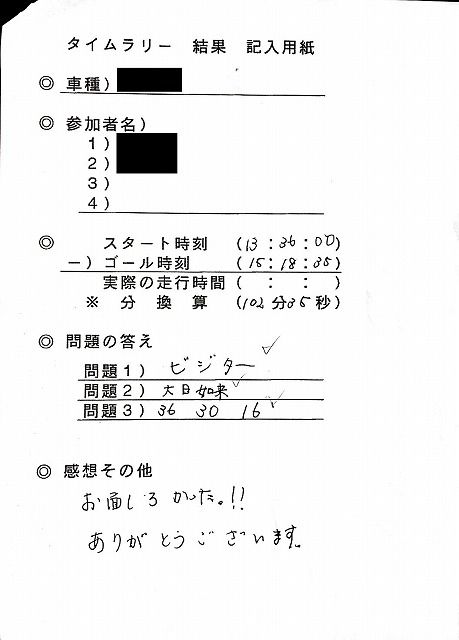 タイムラリー 結果 記入用紙
◎ 車種)
◎ 参加者名)
1)
2)
3)
4)
◎ スタート時刻 (13:36:00)
－)ゴール時刻 (15:18:35)
実際の走行時間 ( : : )
※ 分 換 算 (102分35秒)
◎ 問題の答え
問題1) ビジター
問題2) 大日如来
問題3) 36 30 16
◎ 感想その他
お面しろかった。!!
ありがとうございます。